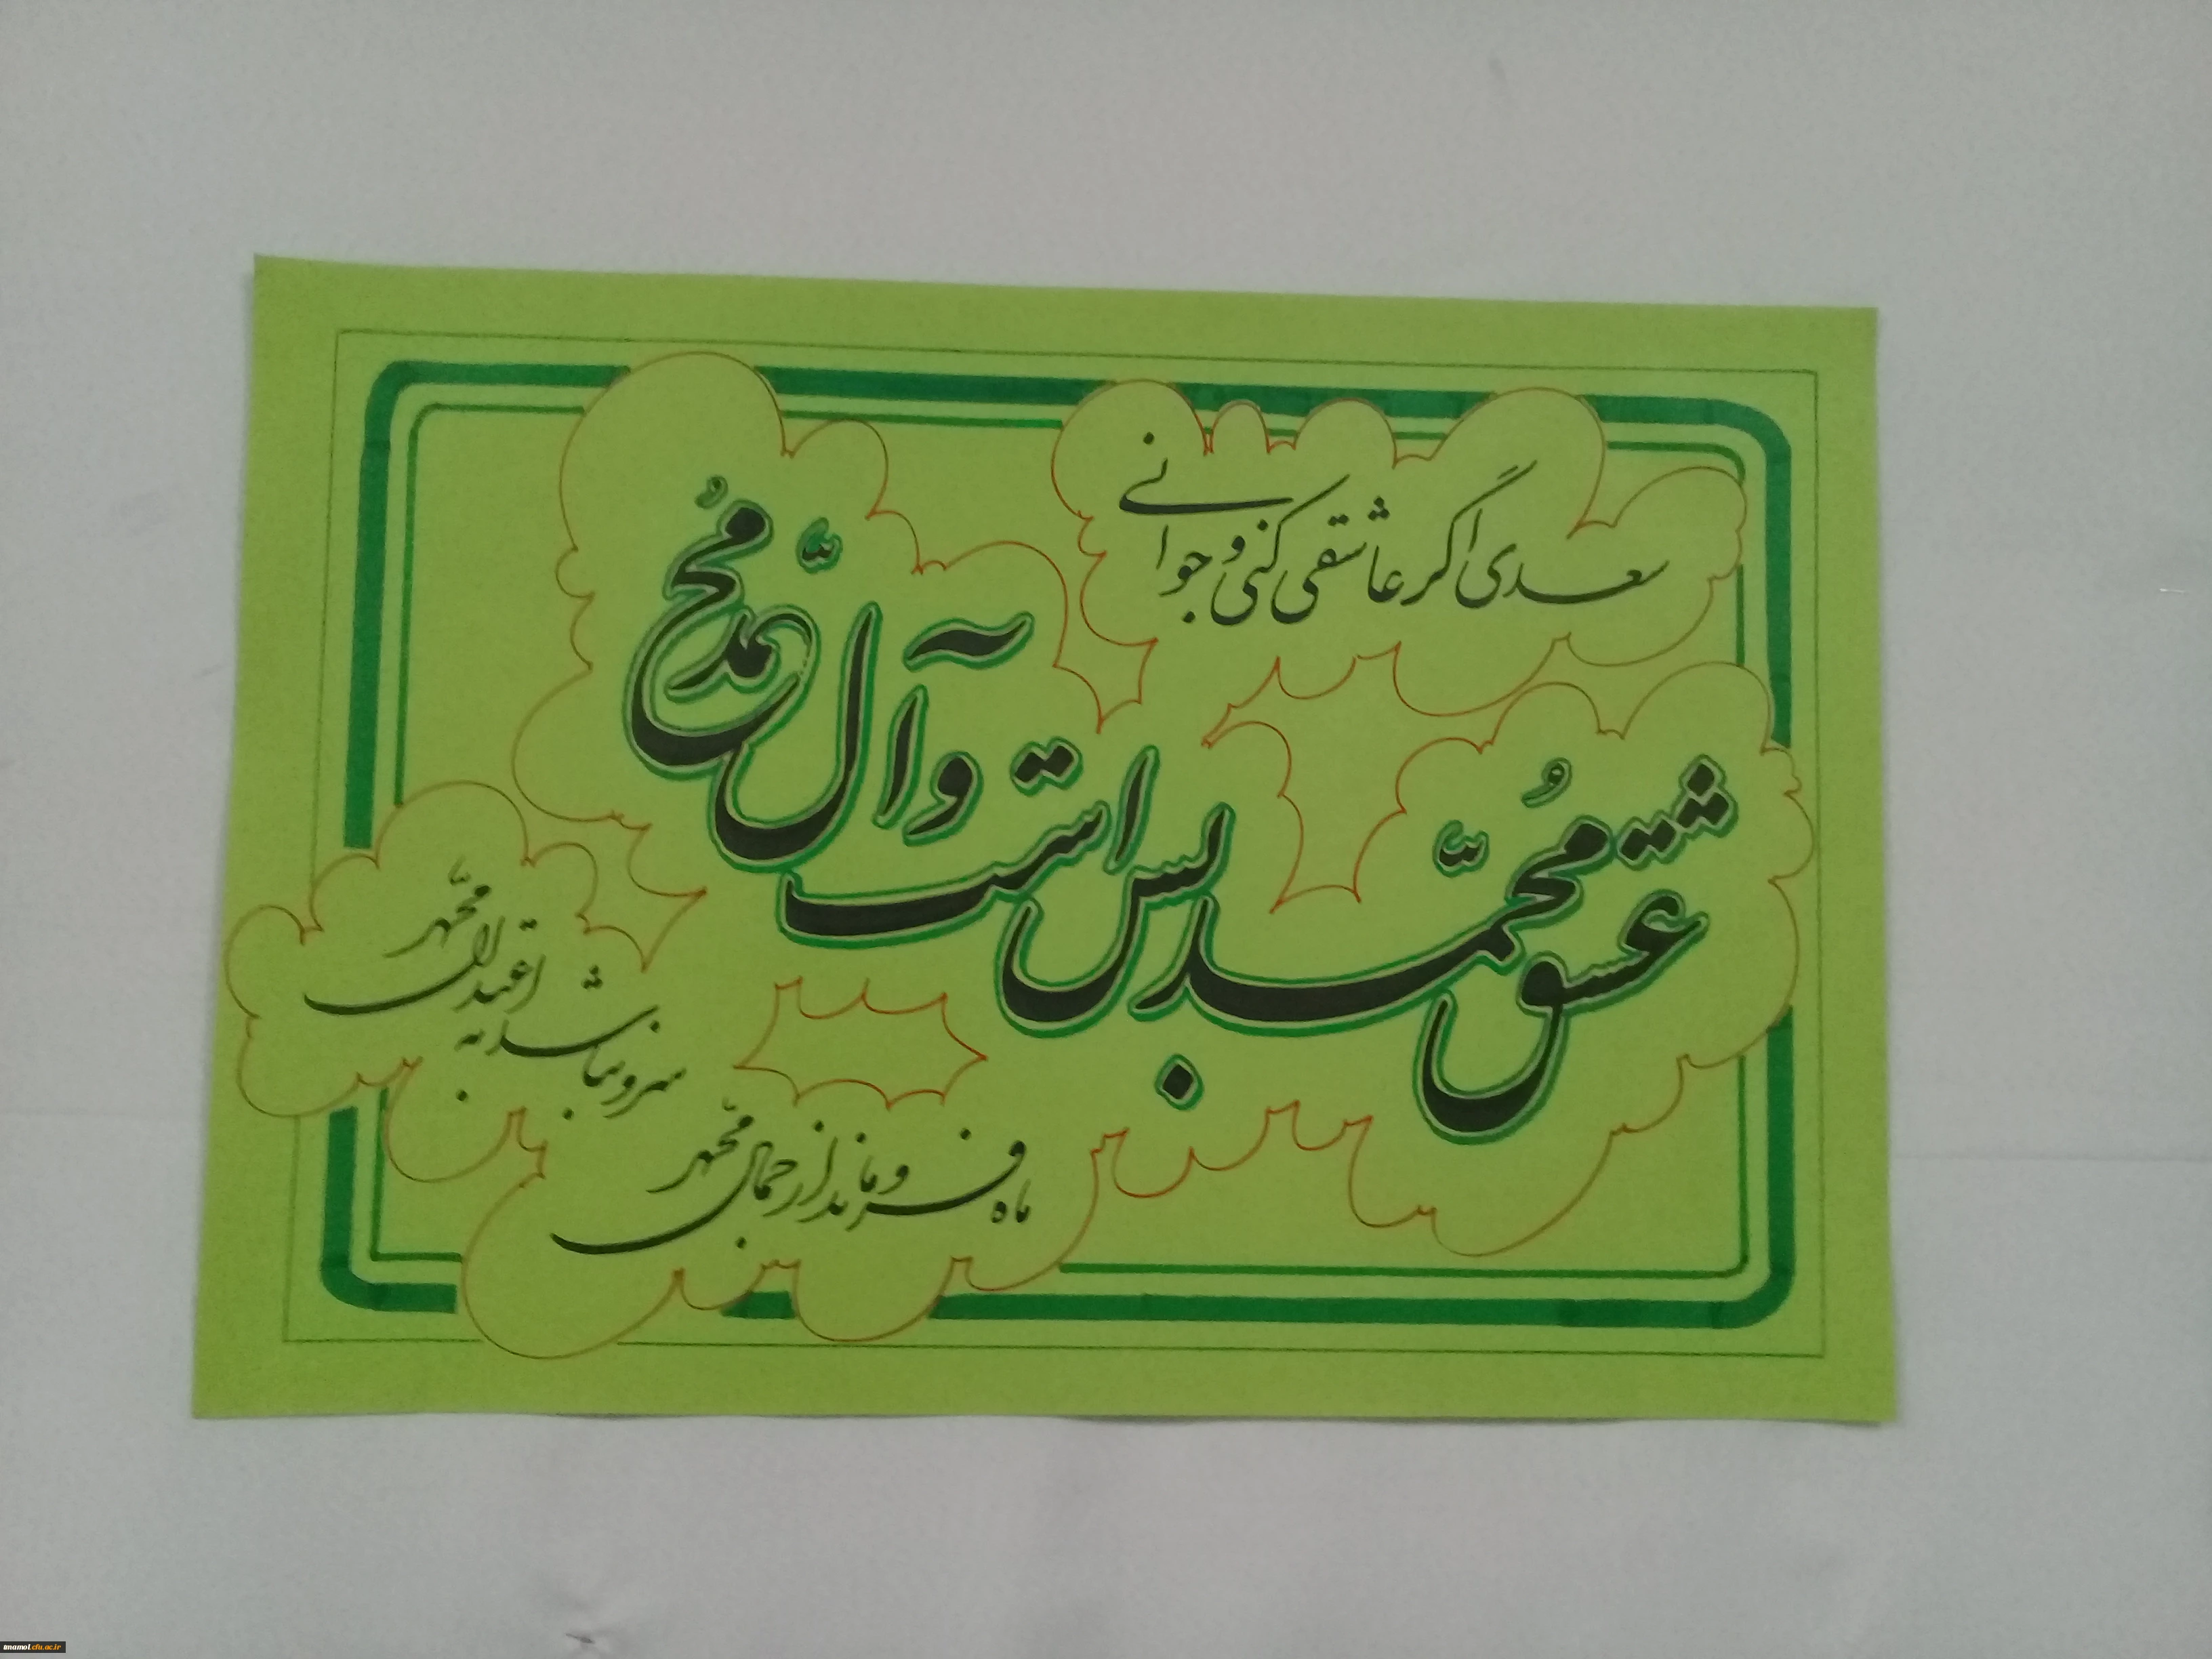 سعدی اگر عاشقی کنی و جوانی
عشق محمّد بس است و آل محمّد
ماه فرو ماند از جمال محمّد
سرو نباشد به اعتدال محمّد
imamol.cfu.ac.ir